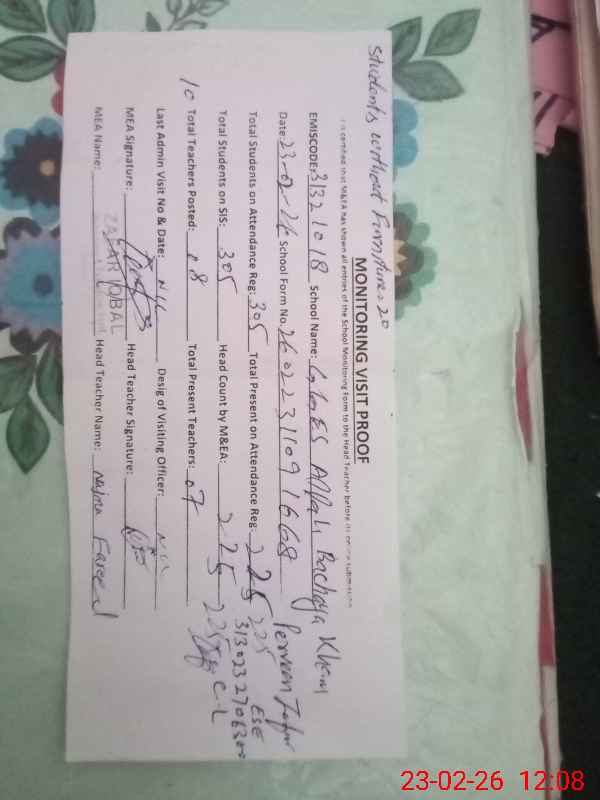 Students without Furniture = 20
MONITORING VISIT PROOF
It is certified that M&EA has shown all entries of the School Monitoring Form to the Head Teacher before its online submission
EMISCODE: 31321018 School Name: Allah Bachaya Khan
Date: 23-02-26 School Form No. 26022311091668 Perveen
Total Students on Attendance Reg: 305 Total Present on Attendance Reg: 225 225 ESE
Total Students on SIS: 305 Head Count by M&EA: 225 225
10 Total Teachers Posted: 08 Total Present Teachers: 07 C-L
Last Admin Visit No & Date: NIL Desig of Visiting Officer: NIL
MEA Signature: Head Teacher Signature:
MEA Name: ZAFAR IQBAL Head Teacher Name: Najma
23-02-26 12:08